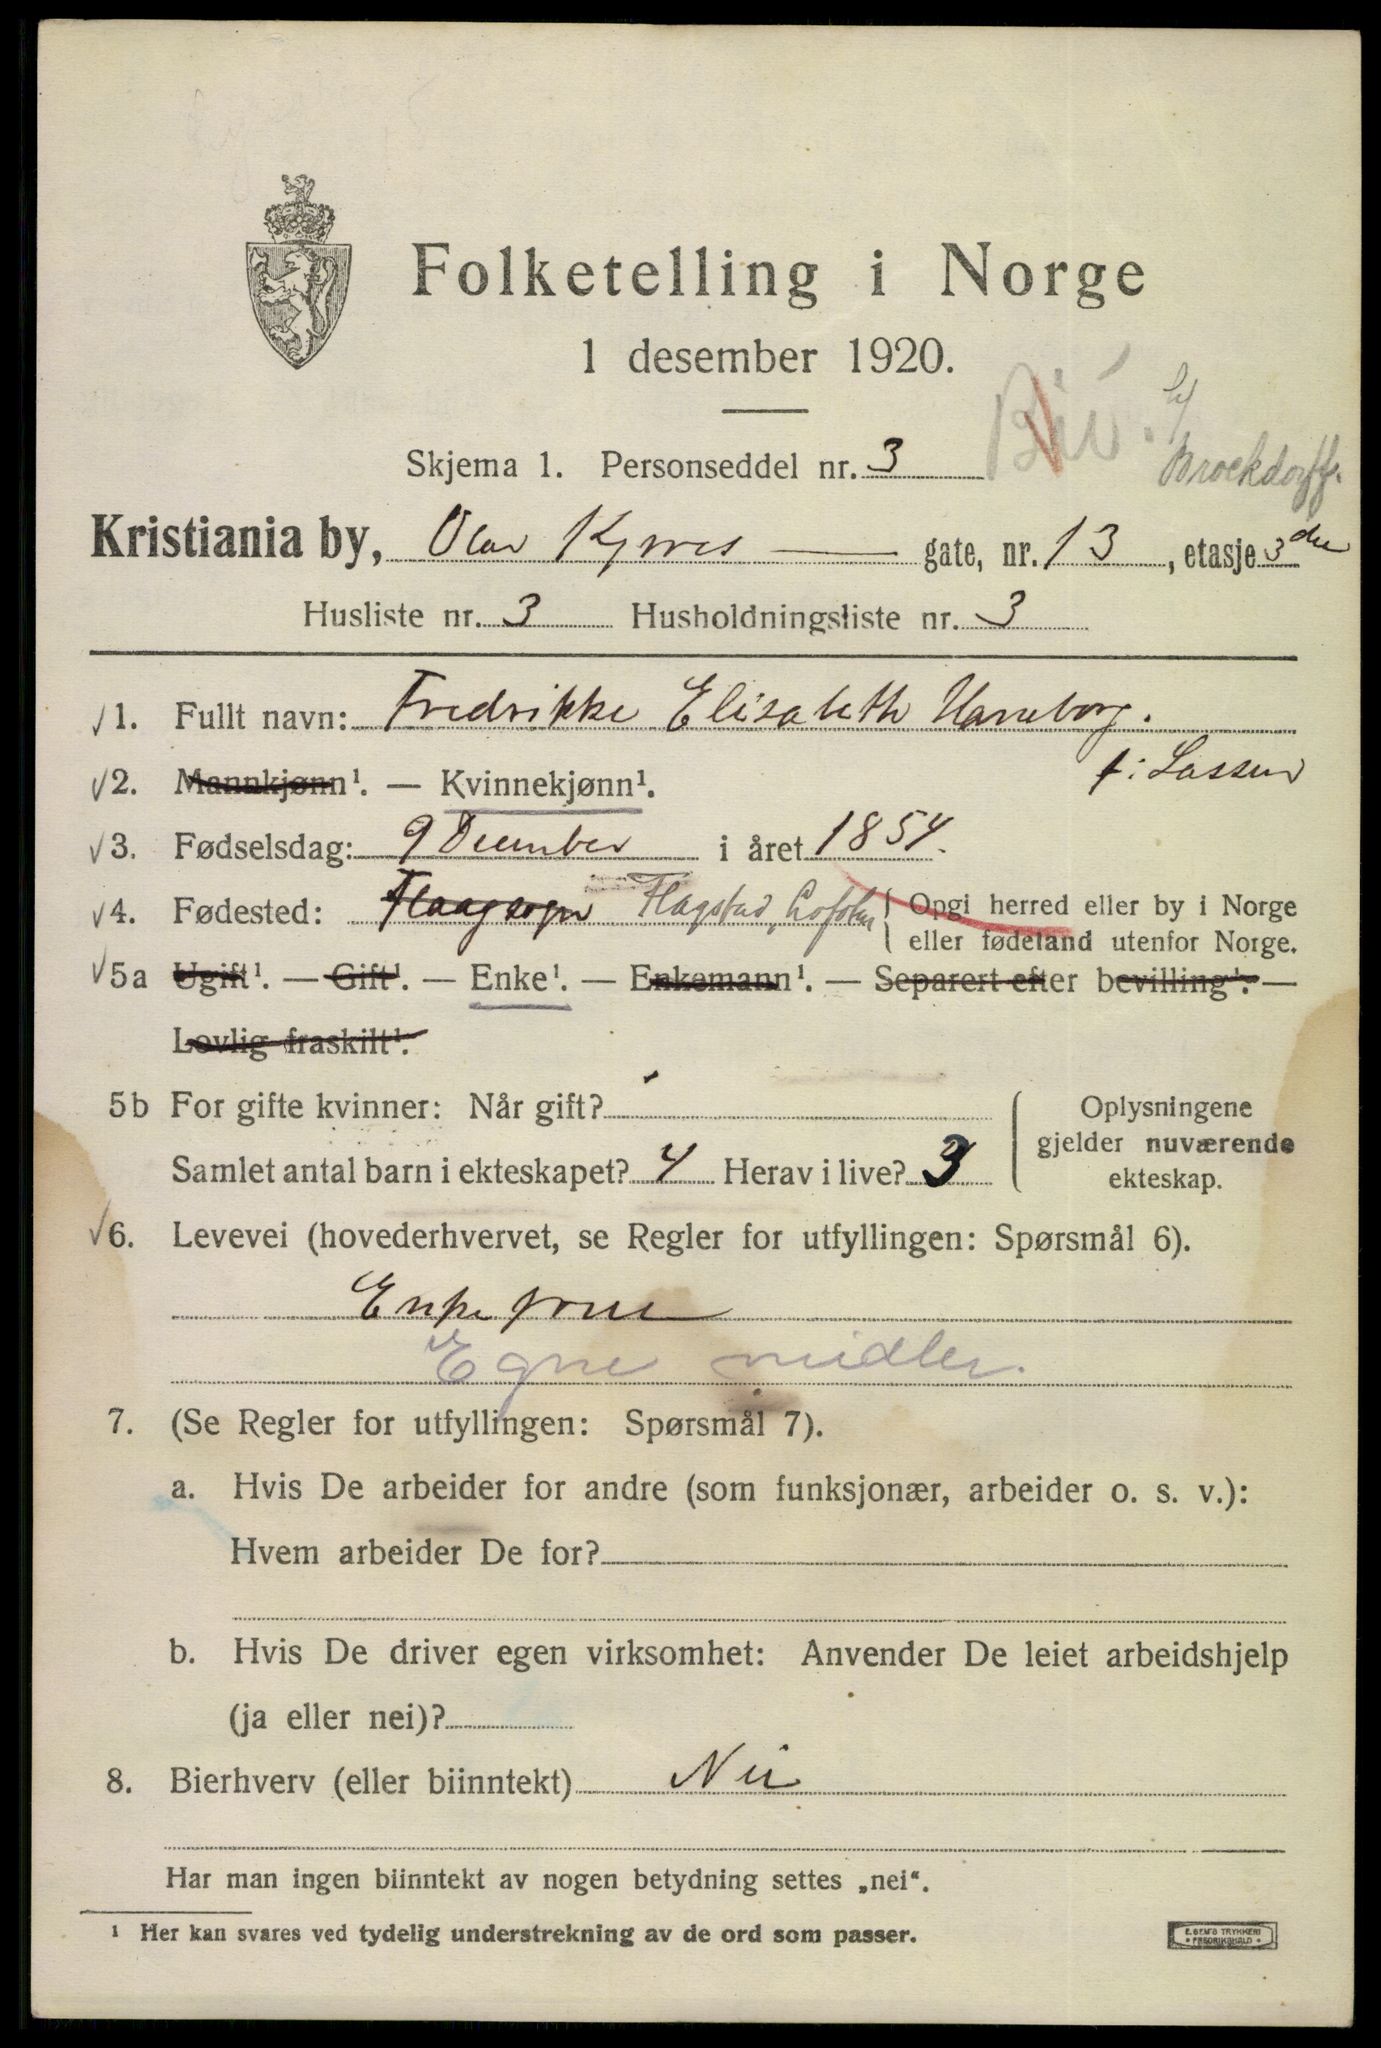 Folketelling i Norge
1 desember 1920.
Skjema 1. Personseddel nr. 3
Brockdorff.
Kristiania by, Olav Kyrres gate, nr. 13, etasje 3die
Husliste nr. 3 Husholdningsliste nr. 3
1. Fullt navn: Fredrikke Elisabeth Harreborg.
f: Lassen
2. Mannkjønn¹. — Kvinnekjønn¹.
3. Fødselsdag: 9 December i året 1854.
4. Fødested: Flaagsogn Flagstad, Lofoten { Opgi herred eller by i Norge
eller fødeland utenfor Norge.
5a Ugift¹. — Gift¹. — Enke¹. — Enkemann¹. — Separert efter bevilling¹. —
Lovlig fraskilt¹.
5b For gifte kvinner: Når gift?
Samlet antal barn i ekteskapet? 4 Herav i live? 3
Oplysningene
gjelder nuværende
ekteskap.
6. Levevei (hovederhvervet, se Regler for utfyllingen: Spørsmål 6).
Enkefrue
Egne midler.
7. (Se Regler for utfyllingen: Spørsmål 7).
a. Hvis De arbeider for andre (som funksjonær, arbeider o. s. v.):
Hvem arbeider De for?
b. Hvis De driver egen virksomhet: Anvender De leiet arbeidshjelp
(ja eller nei)?
8. Bierhverv (eller biinntekt) Nei
Har man ingen biinntekt av nogen betydning settes „nei“.
¹ Her kan svares ved tydelig understrekning av de ord som passer.
E. SEM'S TRYKKERI
• FREDRIKSHALD •